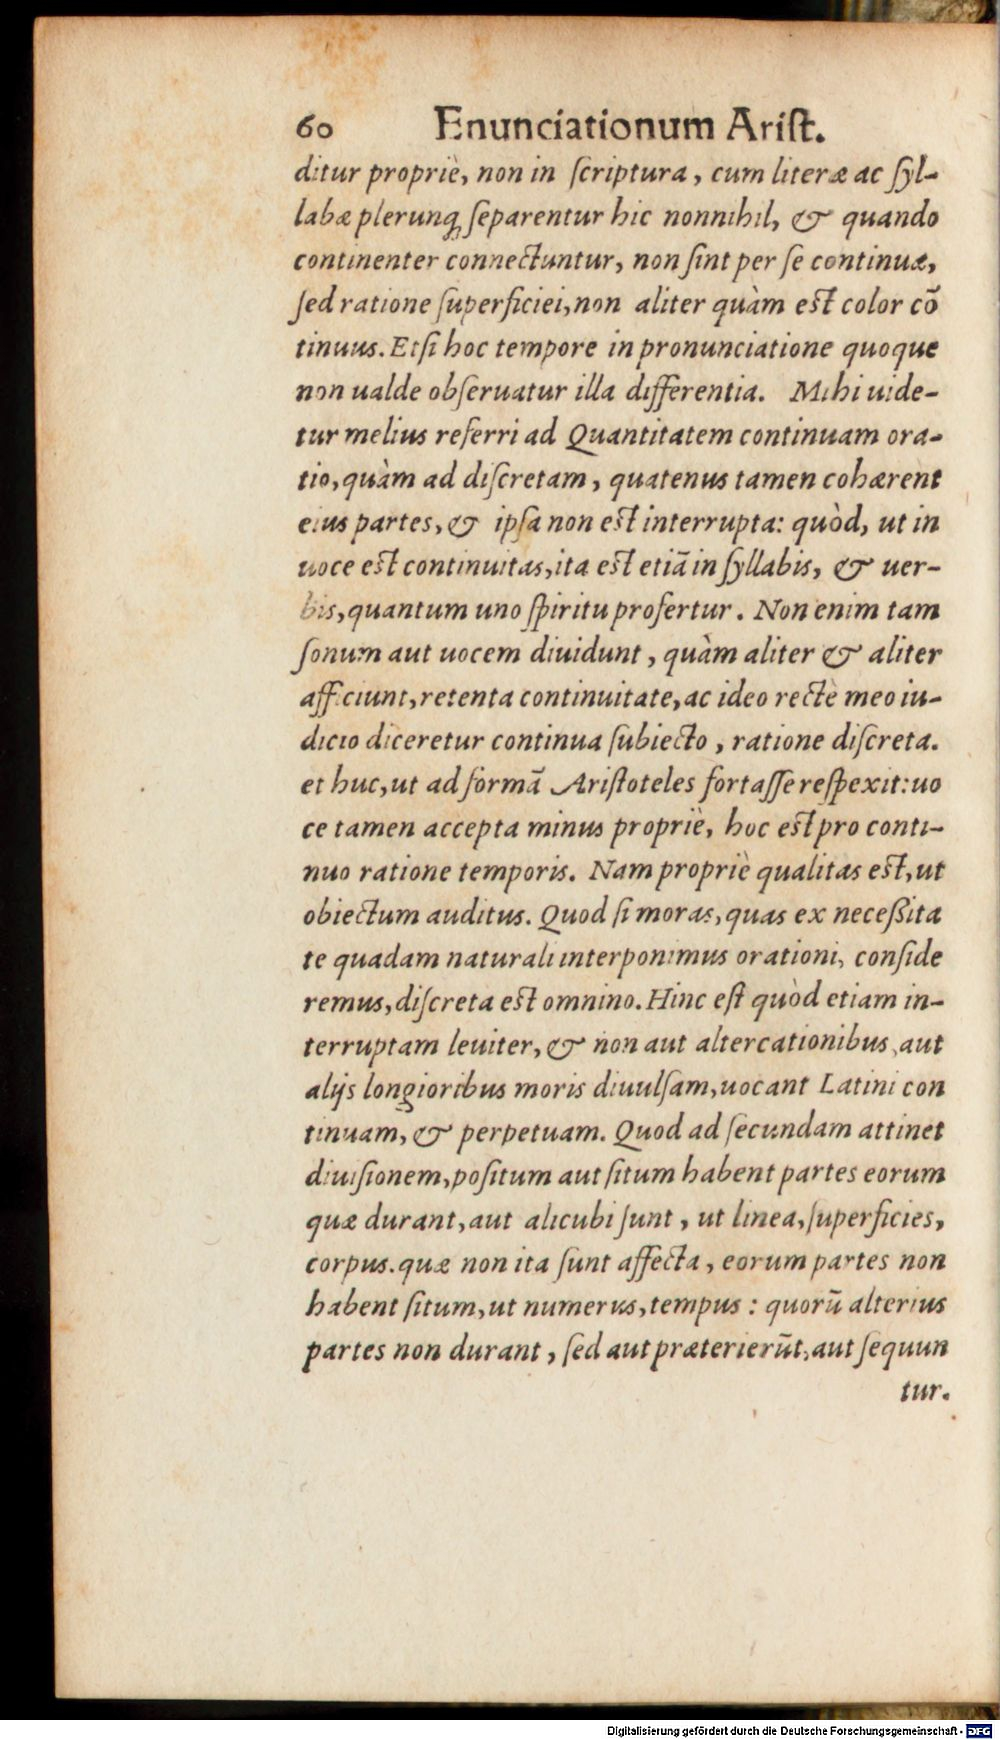 60 Enunciationum Ariſt.
ditur propriè, non in ſcriptura, cum literæ ac ſyl-
labæ plerunq; ſeparentur hic nonnihil, & quando
continenter connectuntur, non ſint per ſe continuæ,
ſed ratione ſuperficiei, non aliter quàm eſt color cõ
tinuus. Etſi hoc tempore in pronunciatione quoque
non ualde obſeruatur illa differentia. Mihi uide-
tur melius referri ad Quantitatem continuam ora-
tio, quàm ad diſcretam, quatenus tamen cohærent
eius partes, & ipſa non eſt interrupta: quòd, ut in
uoce eſt continuitas, ita eſt etiã in ſyllabis, & uer-
bis, quantum uno ſpiritu profertur. Non enim tam
ſonum aut uocem diuidunt, quàm aliter & aliter
afficiunt, retenta continuitate, ac ideo rectè meo iu-
dicio diceretur continua ſubiecto, ratione diſcreta.
et huc, ut ad formã Ariſtoteles fortaſſe reſpexit: uo
ce tamen accepta minus propriè, hoc eſt pro conti-
nuo ratione temporis. Nam propriè qualitas eſt, ut
obiectum auditus. Quod ſi moras, quas ex neceßita
te quadam naturali interponimus orationi, conſide
remus, diſcreta eſt omnino. Hinc eſt quòd etiam in-
terruptam leuiter, & non aut altercationibus, aut
alijs longioribus moris diuulſam, uocant Latini con
tinuam, & perpetuam. Quod ad ſecundam attinet
diuiſionem, poſitum aut ſitum habent partes eorum
quæ durant, aut alicubi ſunt, ut linea, ſuperficies,
corpus. quæ non ita ſunt affecta, eorum partes non
habent ſitum, ut numerus, tempus: quorũ alterius
partes non durant, ſed aut præterierũt, aut ſequun
tur.
Digitalisierung gefördert durch die Deutsche Forschungsgemeinschaft - DFG